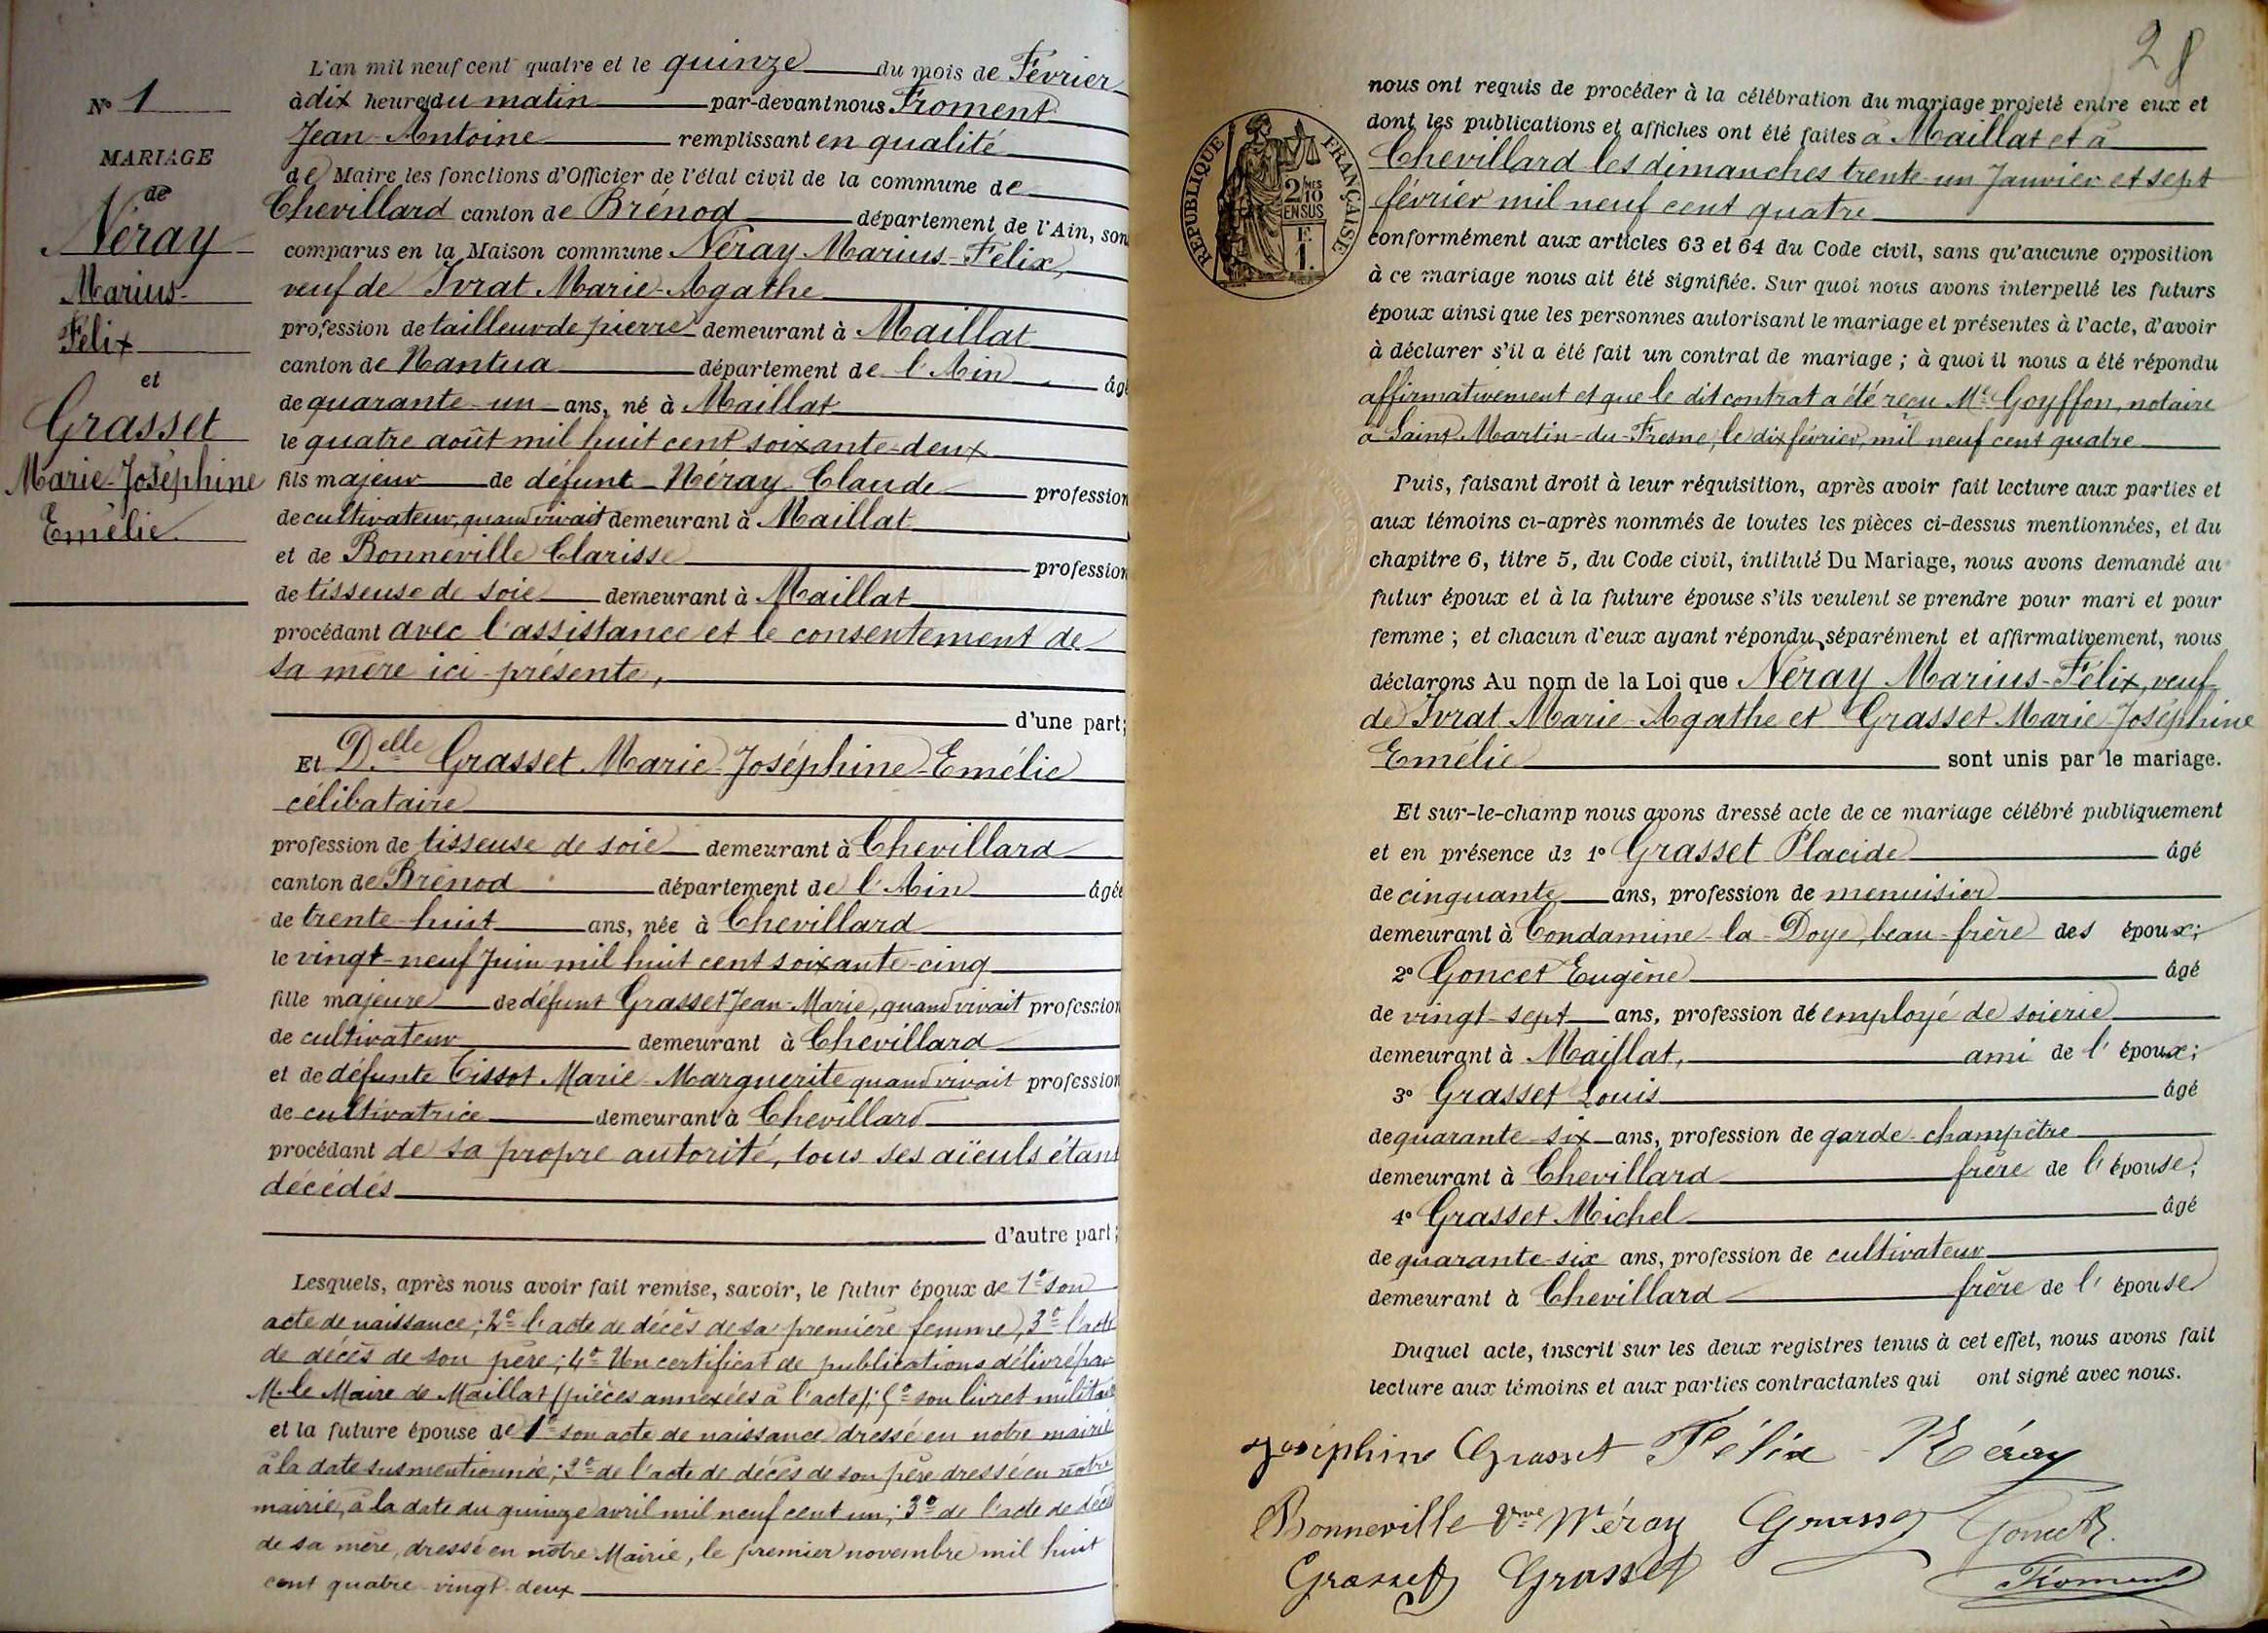 N° 1
MARIAGE
de
Néray
Marius-
Félix
et
Grasset
Marie-Joséphine
Emélie.
L'an mil neuf cent quatre et le quinze du mois de Février
à dix heures du matin par-devant nous Froment
Jean-Antoine remplissant en qualité
de Maire les fonctions d'Officier de l'état civil de la commune de
Chevillard canton de Brénod département de l'Ain, son
comparus en la Maison commune Néray Marius-Félix,
veuf de Ivrat Marie-Agathe
profession de tailleur de pierre demeurant à Maillat
canton de Nantua département de l'Ain âgé
de quarante-un ans, né à Maillat
le quatre août mil huit cent soixante-deux
fils majeur de défunt Néray Claude profession
de cultivateur, quand vivait demeurant à Maillat
et de Bonneville Clarisse profession
de tisseuse de soie demeurant à Maillat
procédant avec l'assistance et le consentement de
sa mère ici présente,
d'une part;
Et Delle Grasset Marie-Joséphine-Emélie
célibataire
profession de tisseuse de soie demeurant à Chevillard
canton de Brénod département de l'Ain âgée
de trente-huit ans, née à Chevillard
le vingt-neuf Juin mil huit cent soixante-cinq
fille majeure de défunt Grasset Jean-Marie, quand vivait profession
de cultivateur demeurant à Chevillard
et de défunte Tissot Marie-Marguerite quand vivait profession
de cultivatrice demeurant à Chevillard
procédant de sa propre autorité, tous ses aïeuls étant
décédés
d'autre part;
Lesquels, après nous avoir fait remise, savoir, le futur époux de 1° son
acte de naissance; 2° l'acte de décès de sa première femme, 3° l'acte
de décès de son père; 4° Un certificat de publications délivré par
M. le Maire de Maillat (pièces annexées à l'acte); 5° son livret militaire
et la future épouse de 1° son acte de naissance dressé en notre mairie
à la date susmentionnée; 2° de l'acte de décès de son père dressé en notre
mairie, à la date du quinze avril mil neuf cent un; 3° de l'acte de décès
de sa mère, dressé en notre Mairie, le premier novembre mil huit
cent quatre-vingt-deux
28
RÉPUBLIQUE FRANÇAISE
2/10 MES
EN SUS
F.
1.
nous ont requis de procéder à la célébration du mariage projeté entre eux et
dont les publications et affiches ont été faites à Maillat et à
Chevillard les dimanches trente-un Janvier et sept
février mil neuf cent quatre
conformément aux articles 63 et 64 du Code civil, sans qu'aucune opposition
à ce mariage nous ait été signifiée. Sur quoi nous avons interpellé les futurs
époux ainsi que les personnes autorisant le mariage et présentes à l'acte, d'avoir
à déclarer s'il a été fait un contrat de mariage ; à quoi il nous a été répondu
affirmativement et que le dit contrat a été reçu Me Goyffon, notaire
à Saint-Martin-du-Fresne, le dix février, mil neuf cent quatre
Puis, faisant droit à leur réquisition, après avoir fait lecture aux parties et
aux témoins ci-après nommés de toutes les pièces ci-dessus mentionnées, et du
chapitre 6, titre 5, du Code civil, intitulé Du Mariage, nous avons demandé au
futur époux et à la future épouse s'ils veulent se prendre pour mari et pour
femme ; et chacun d'eux ayant répondu séparément et affirmativement, nous
déclarons Au nom de la Loi que Néray Marius-Félix, veuf
de Ivrat Marie-Agathe et Grasset Marie-Joséphine
Emélie sont unis par le mariage.
Et sur-le-champ nous avons dressé acte de ce mariage célébré publiquement
et en présence de 1° Grasset Placide âgé
de cinquante ans, profession de menuisier
demeurant à Condamine-la-Doye, beau-frère des époux;
2° Goncet Eugène âgé
de vingt-sept ans, profession de employé de soierie
demeurant à Maillat, ami de l'époux;
3° Grasset Louis âgé
de quarante-six ans, profession de garde-champêtre
demeurant à Chevillard frère de l'épouse;
4° Grasset Michel âgé
de quarante-six ans, profession de cultivateur
demeurant à Chevillard frère de l'épouse
Duquel acte, inscrit sur les deux registres tenus à cet effet, nous avons fait
lecture aux témoins et aux parties contractantes qui ont signé avec nous.
Joséphine Grasset Félix Néray
Bonneville Vve Néray Grasset Goncet
Grasset Grasset Froment